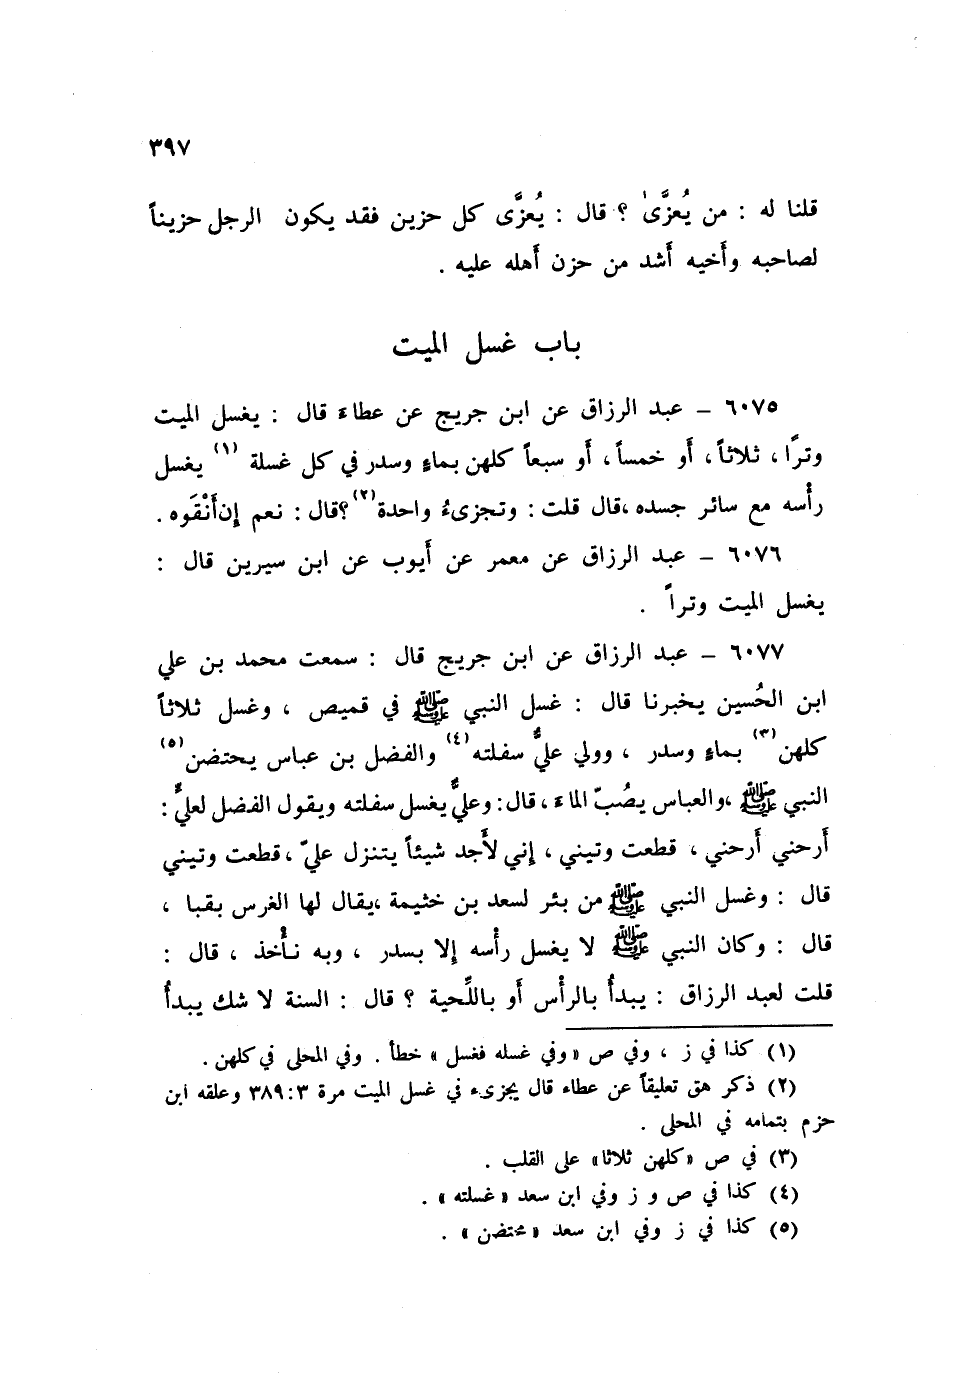 ٣٩٧
قلنا له : من يُعزَّىٰ ؟ قال : يُعزَّى كل حزين فقد يكون الرجل حزيناً
لصاحبه وأخيه أشد من حزن أهله عليه .
باب غسل الميت
٦٠٧٥ – عبد الرزاق عن ابن جريج عن عطاء قال : يغسل الميت
وترًا ، ثلاثاً ، أو خمساً ، أو سبعاً كلهن بماءٍ وسدر في كل غسلة (١) يغسل
رأسه مع سائر جسده ،قال قلت : وتجزىءُ واحدة(٢)؟قال : نعم إن أنْقَوه .
٦٠٧٦ – عبد الرزاق عن معمر عن أيوب عن ابن سيرين قال :
يغسل الميت وتراً .
٦٠٧٧ – عبد الرزاق عن ابن جريج قال : سمعت محمد بن علي
ابن الحُسين يخبرنا قال : غسل النبي ﷺ في قميص ، وغسل ثلاثاً
كلهن(٣) بماءٍ وسدر ، وولي عليٌّ سفلته(٤) والفضل بن عباس يحتضن(٥)
النبي ﷺ ،والعباس يصُبّ الماءَ ، قال: وعليٌّ يغسل سفلته ويقول الفضل لعليٍّ :
أرحني أرحني ، قطعت وتيني ، إني لأَجد شيئاً يتنزل عليّ ، قطعت وتيني
قال : وغسل النبي ﷺ من بئر لسعد بن خثيمة ،يقال لها الغرس بقبا ،
قال : وكان النبي ﷺ لا يغسل رأسه إلا بسدر ، وبه نأْخذ ، قال :
قلت لعبد الرزاق : يبدأُ بالرأْس أو باللِّحية ؟ قال : السنة لا شك يبدأُ
(١) كذا في ز ، وفي ص «وفي غسله فغسل» خطأ . وفي المحلى في كلهن .
(٢) ذكر هق تعليقاً عن عطاء قال يجزىء في غسل الميت مرة ٣٨٩:٣ وعلقه ابن
حزم بتمامه في المحلى .
(٣) في ص «كلهن ثلاثا» على القلب .
(٤) كذا في ص و ز وفي ابن سعد «غسلته» .
(٥) كذا في ز وفي ابن سعد «محتضن» .